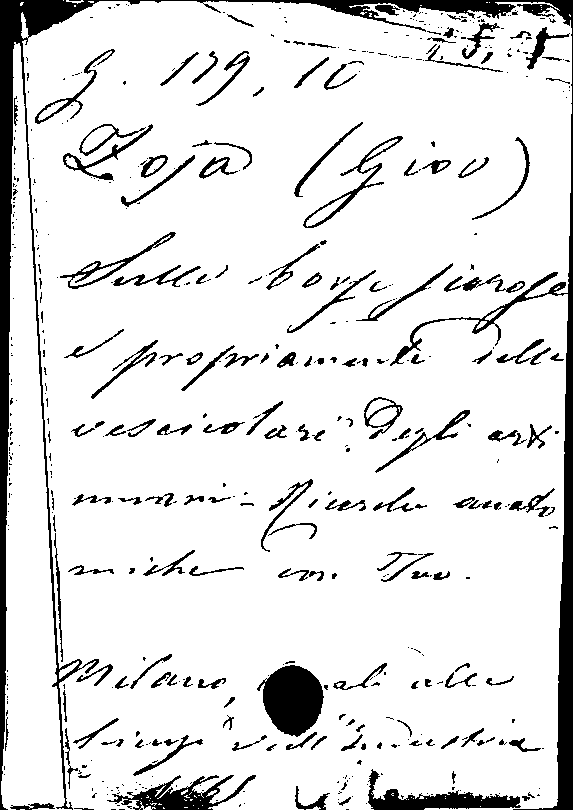 G. 179, 10
Zoja (Giov)
Sulle borse sierose
e propriamente delle
vescicolari degli arti
umani - Ricerche anato-
miche con Tav.
Milano, alle
dell'Industria
1865